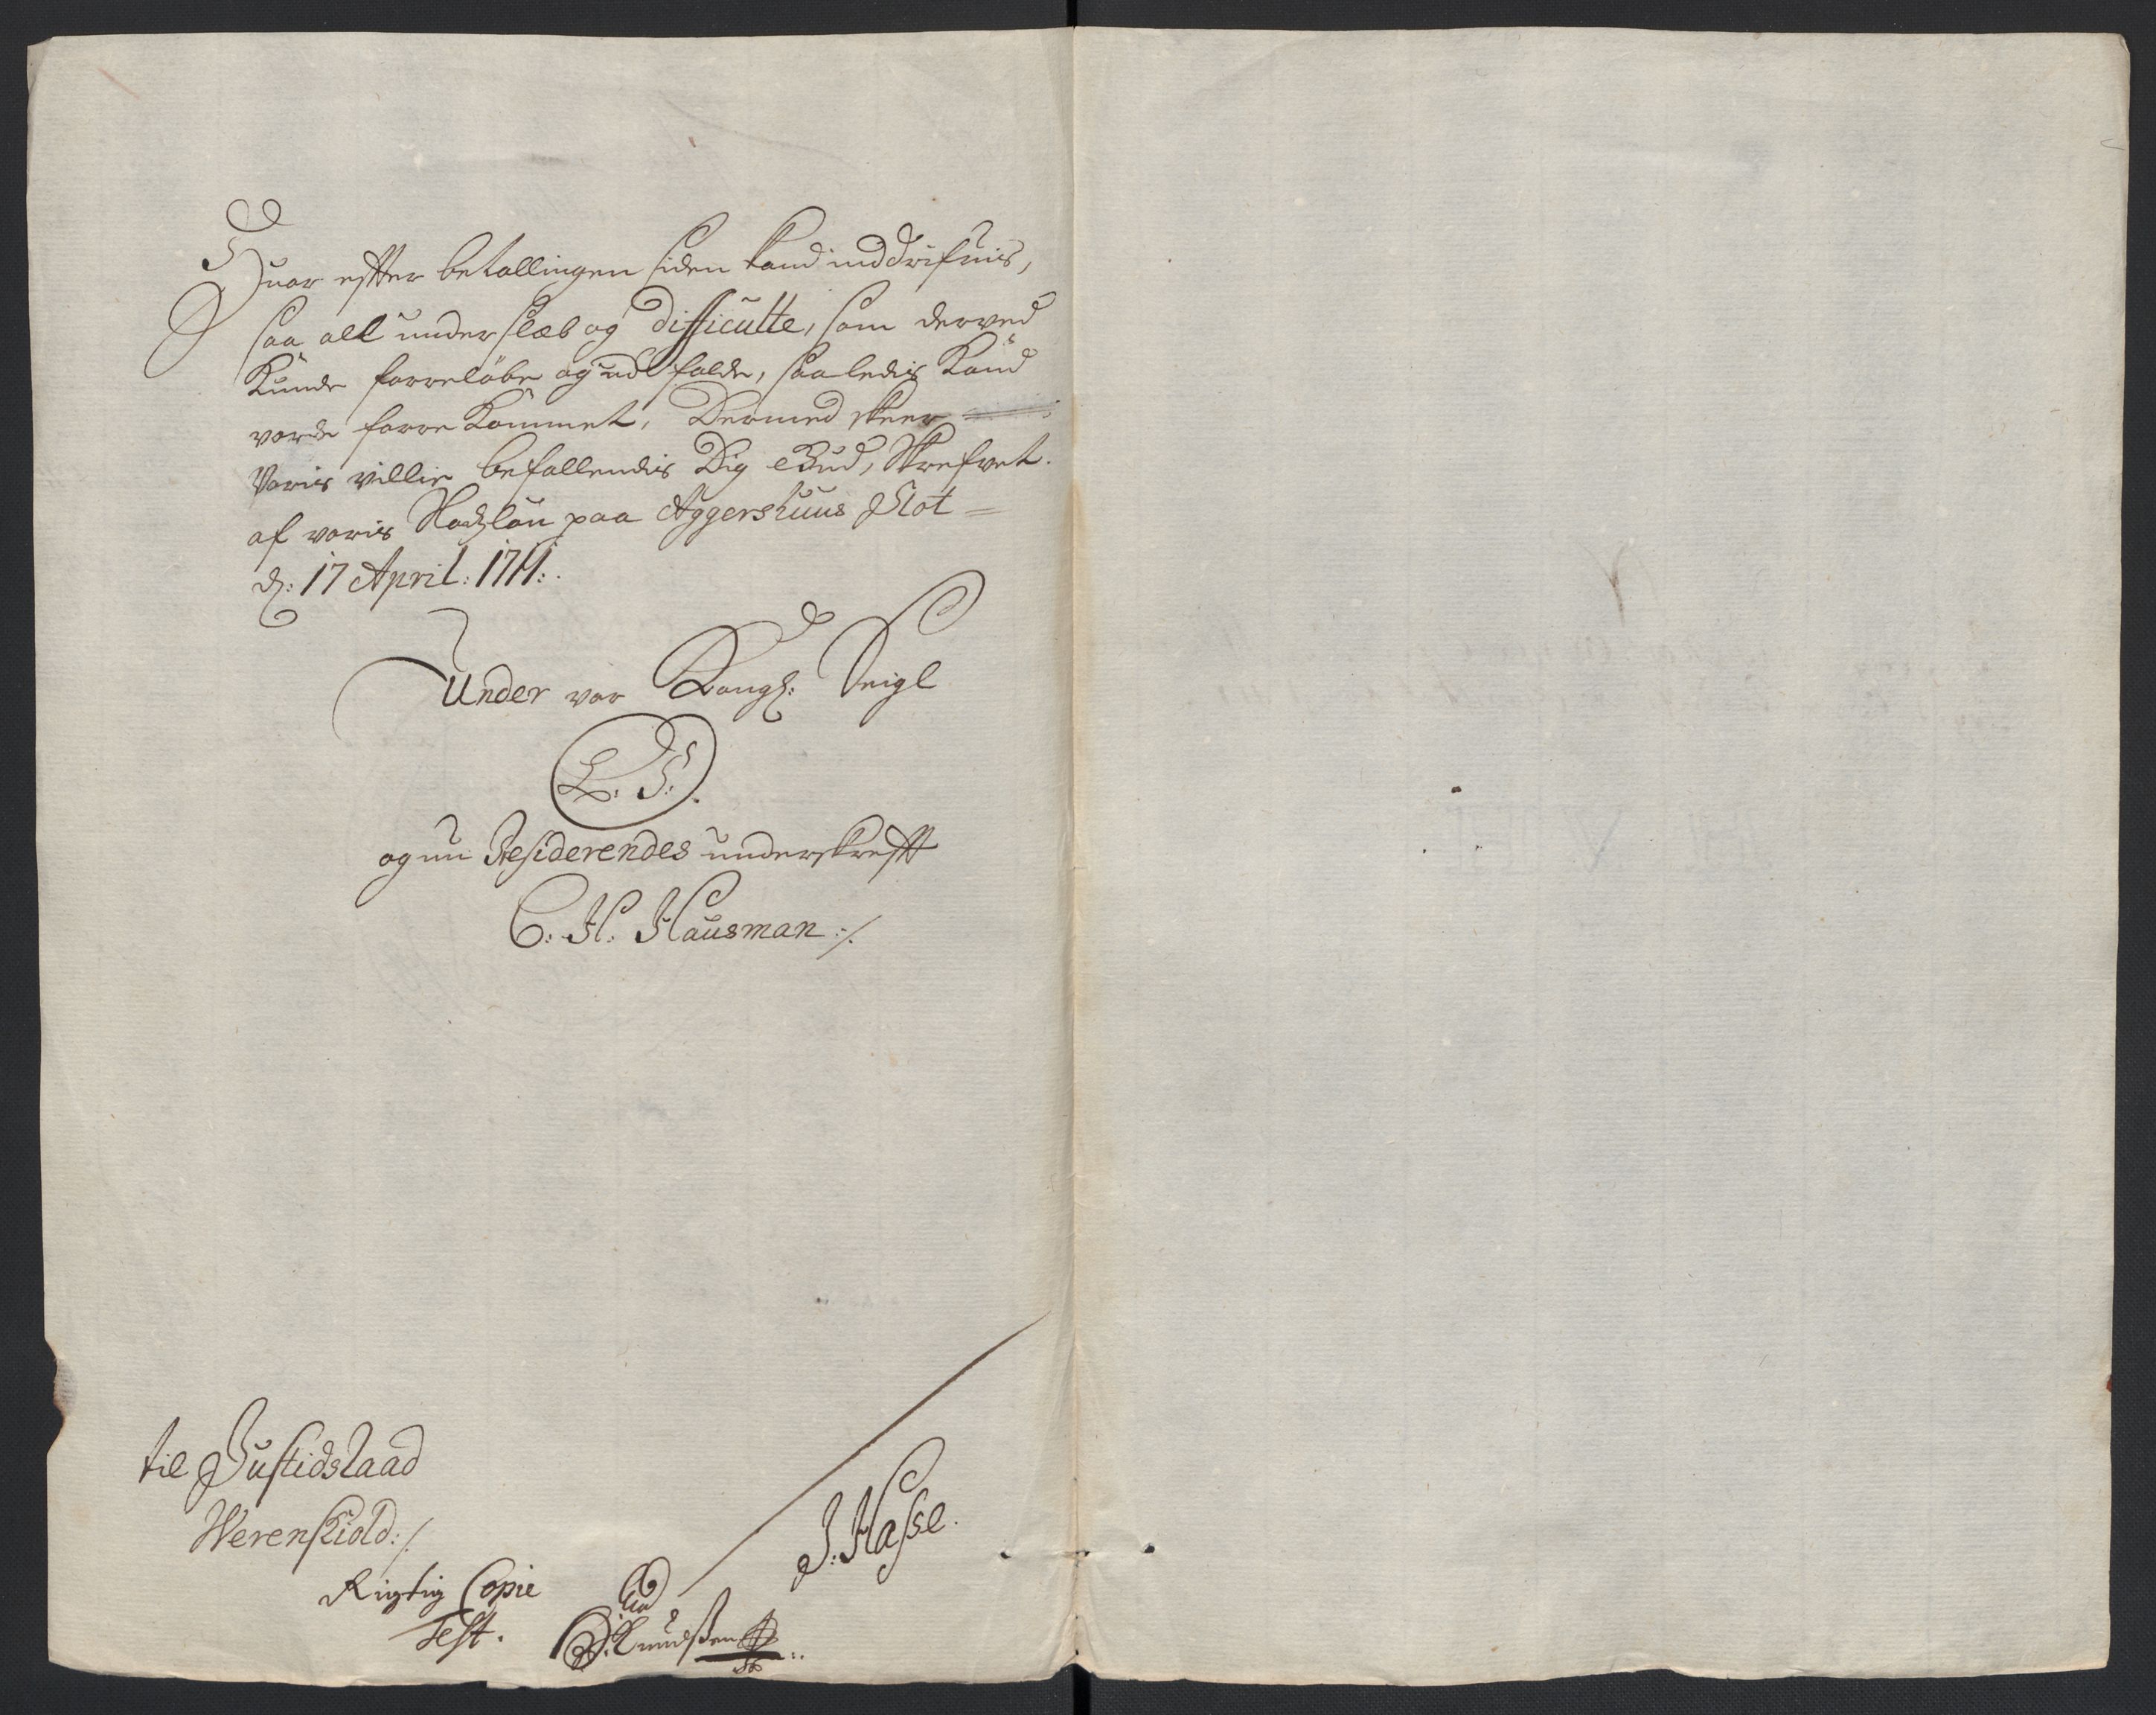 Huor efter betallingen siden kand inddrifuis,
saa all underslæb og difficulte, som derved
Kunde forreløbe og udfalde, saaledis Kand
vorde forre Kommet, Dermed skeer
Voris villie befallendis Dig Gud, Skrefvet
af voris Raadzlau paa Aggershuus Slot
d: 17 April: 1711:.
Under vor Kongl: Seigl
L: S:
og nu Residerendes underskrefft
C: H: Hausman ./.
til Justidsraad
Werenskiold:/.
J: Hasse.
Rigtig Copie
Test.
Knudssen